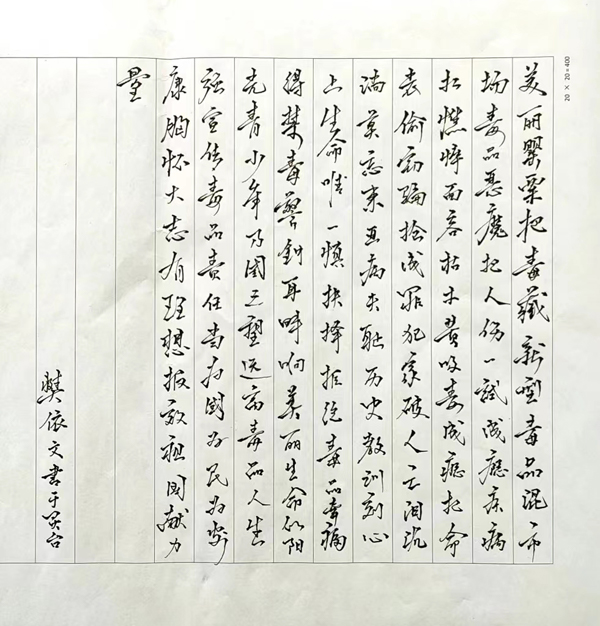 美丽罂粟把毒藏新型毒品混市
场毒品恶魔把人伤一试成瘾疾病
扛憔悴面容枯木黄吸毒成瘾把命
丧偷窃骗抢成罪犯家破人亡泪流
淌莫忘东亚病夫耻历史教训刻心
上生命唯一慎抉择拒绝毒品毒病
得禁毒警钟耳畔响美丽生命似阳
光青少年乃国之望远离毒品人生
强宣传毒品责任当为国为民为安
康胸怀大志有理想报效祖国献力
量
樊依文书于灵台
20×20=400